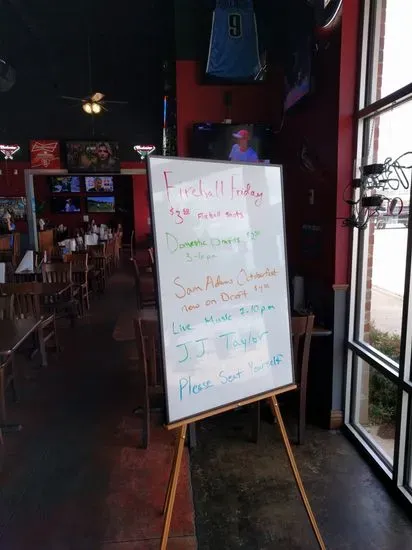 9
Fireball Friday
$3.00 Fireball Shots
Domestic Drafts
3-6pm
Sam Adams Octoberfest
now on Draft
Live Music 7-10 p.m.
JJ Taylor
Please Seat Yourself